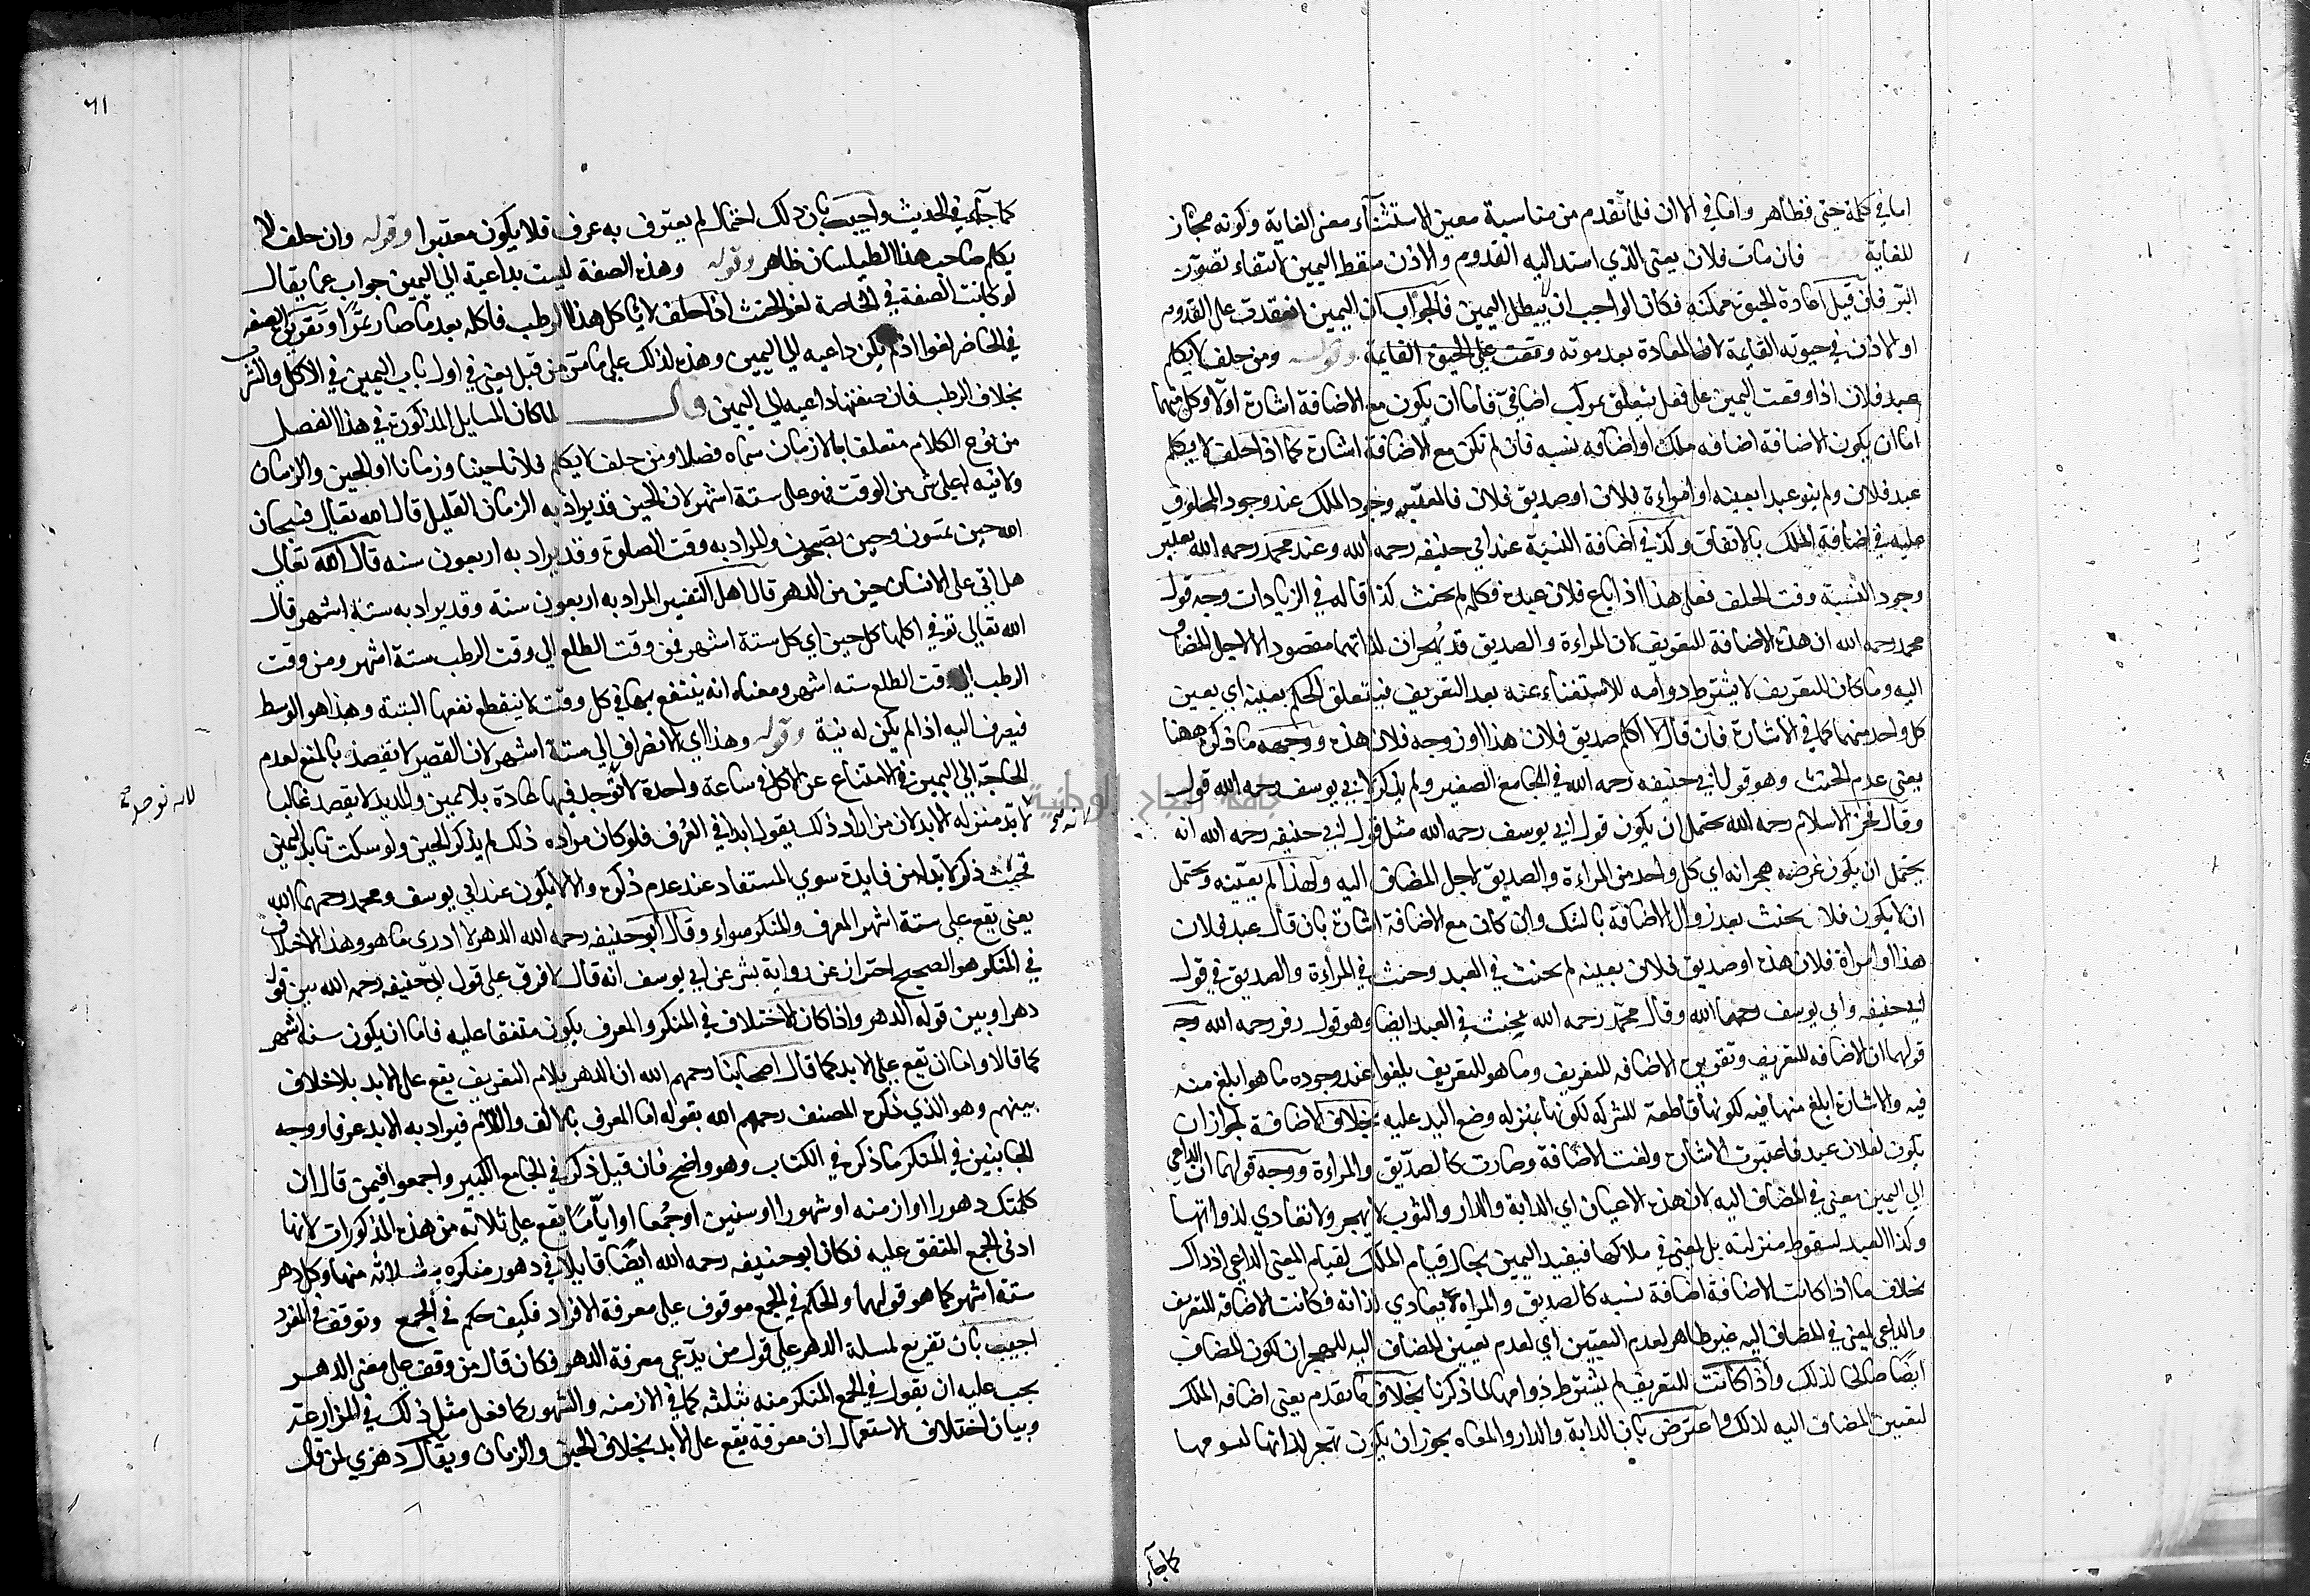 اما في كلمة حتى فظاهر واما في الا ان فلما تقدم من مناسبة معنى الاستثناء معنى الغاية وكونه مجاز
للغاية وقوله فان مات فلان يعني الذي اسند اليه القدوم والاذن سقط اليمين لانتفاء تصور
البر فان قيل اعادة الحيوة ممكنه فكان الواجب ان لا يبطل اليمين فالجواب ان اليمين انعقدت على القدوم
او الاذن في حيوته القايمة لان المعادة بعد موته وقعت على الحيوة القايمة وقوله ومن حلف لا يكلم
عبد فلان اذا وقعت اليمين على فعل متعلق بمركب اضافي فاما ان يكون مع الاضافة اشارة اولا وكل منهما
اما ان يكون الاضافة اضافه ملك او اضافه نسبه فان لم تكن مع الاضافة اشارة كما اذا حلف لا يكلم
عبد فلان ولم ينو عبدا بعينه او امراءة فلان او صديق فلان فالمعتبر وجود الملك عند وجود المحلوف
عليه في اضافة الملك بالاتفاق وكذي اضافة النسبة عند ابي حنيفه رحمه الله وعند محمد رحمه الله يعتبر
وجود النسبة وقت الحلف فعلى هذا اذا باع فلان عبده فكلمه لم يحنث كذا قاله في الزيادات وجه قول
محمد رحمه الله ان هذه الاضافة للتعريف لان المراءة والصديق قد يهجران لذاتهما مقصودا لا لاجل المضاف
اليه وما كان للتعريف لا يشترط دوامه للاستغناء عنه بعد التعريف فيتعلق الحكم بعينه اي بعين
كل واحد منهما كما في الاشارة فان قال لا اكلم صديق فلان هذا او زوجه فلان هذه ووجهه ما ذكره ههنا
يعني عدم الحنث وهو قول ابي حنيفه رحمه الله في الجامع الصغير ولم يذكر لابي يوسف رحمه الله قول
وقال فخر الاسلام رحمه الله يحتمل ان يكون قول ابي يوسف رحمه الله مثل قول ابي حنيفه رحمه الله انه
يحتمل ان يكون غرضه هجرانه اي كل واحد من المراءة والصديق لاجل المضاف اليه ولهذا لم يعينه ويحتمل
ان لا يكون فلان يحنث بعد زوال الاضافة بالشك وان كان مع الاضافة اشارة بان قال عبد فلان
هذا او امراة فلان هذه او صديق فلان بعينه لم يحنث في العبد وحنث في المراءة والصديق في قول
ابي حنيفه وابي يوسف رحمهما الله وقال محمد رحمه الله يحنث في العبد ايضا وهو قول زفر رحمه الله وجه
قولهما ان الاضافه للتعريف وتقريره الاضافه للتعريف وما هو للتعريف يلغوا عند وجوده ما هو ابلغ منه
فيه والاشارة ابلغ منها فيه لكونها قاطعة للشركه لكونها بمنزله وضع اليد عليه بخلاف الاضافة لجواز ان
يكون لفلان عبد فاعتبرت الاشارة ولغت الاضافة وصارت كالصديق والمراءة ووجه قولهما ان الداعي
الى اليمين معنى في المضاف اليه لان هذه الاعيان اي الدابة والدار والثوب لا يهجر ولا تعادي لذواتها
وكذا العبد لسقوط منزلته بل لمعنى في ملاكها فيقيد اليمين بحال قيام الملك لقيام المعنى الداعي اذ ذاك
بخلاف ما اذا كانت الاضافة اضافة نسبه كالصديق والمراه لانه يعادي لذاته فكانت الاضافه للتعريف
والداعي لمعنى في المضاف اليه غير ظاهر لعدم التعيين اي لعدم تعيين المضاف اليه للهجران لكون المضاف
ايضا صالحا لذلك واذا كانت للتعريف لم يشترط دوامها لما ذكرنا بخلاف ما تقدم يعني اضافه الملك
لتعيين المضاف اليه لذلك واعترض بان الدابة والدار والمعاه يجوز ان يكون تهجر لذاتها لسومها
كما جآء
٦١
كما جآء في الحديث واجيب بان ذلك احتمال لم يعترف به عرف فلا يكون معتبرا وقوله وان حلف لا
يكلم صاحب هذا الطيلسان ظاهر وقوله وهذه الصفة ليست بداعية الى اليمين جواب عما يقال
لو كانت الصفة في الحاضرة لغو الحنث اذا حلف لا ياكل هذا الرطب فاكله بعد ما صار تمرا وتقريره ان الصفه
في الحاضر لغوا اذا لم يكن داعيه الى اليمين وهذه لذلك على ما مر من قبل يعني في اول باب اليمين في الاكل والشرب
بخلاف الرطب فان صفتها داعيه الى اليمين قال لما كان المسايل المذكورة في هذا الفصل
من نوع الكلام متعلقا بالازمان سماه فصلا ومن حلف لا يكلم فلانا حينا او زمانا او الحين والزمان
ولا نيه له على شي من الوقت فهو على ستة اشهر لان الحين قد يراد به الزمان القليل قال الله تعالى فسبحان
الله حين تمسون وحين تصبحون والمراد به وقت الصلوة وقد يراد به اربعون سنه قال الله تعالى
هل اتى على الانسان حين من الدهر قال اهل التفسير المراد به اربعون سنة وقد يراد به ستة اشهر قال
الله تعالى توتي اكلها كل حين اي كل ستة اشهر فمن وقت الطلع الى وقت الرطب ستة اشهر ومن وقت
الرطب الى وقت الطلع سته اشهر ومعناه انه ينتفع بها في كل وقت لا ينقطع نفعها البتة وهذا هو الوسط
فيصرف اليه اذا لم يكن له نية وقوله وهذا اي الانصراف الى ستة اشهر لان القصير لا يقصد بالمنع لعدم
الحاجة الى اليمين في الامتناع عن الاكل في ساعة واحدة لانه توجد فيها عادة بلا يمين والمديد لا يقصد غالبا
لانه بمنزله الابد لان من اراد ذلك يقول ابدا في العرف فلو كان مراده ذلك لم يذكر الحين ولو سكت تابد اليمين
فحيث ذكر لابد له من فايدة سوي المستفاد عند عدم ذكره والا لا يكون عند ابي يوسف ومحمد رحمهما الله
يعني تقع على ستة اشهر المعرف والمنكر سواء وقال ابو حنيفه رحمه الله الدهر لا ادرى ما هو وهذا الاختلاف
في المنكر هو الصحيح احتراز عن رواية بشر عن ابي يوسف انه قال لا فرق على قول ابي حنيفه رحمه الله بين قوله
دهرا وبين قوله الدهر واذا كان الاختلاف في المنكر والمعرف يكون متفقا عليه فاما ان يكون سته اشهر
كما قالا واما ان تقع على الابد كما قال اصحابنا رحمهم الله ان الدهر بلام التعريف يقع على الابد بلا خلاف
بينهم وهو الذي ذكره المصنف رحمهم الله بقوله اما المعرف بالالف واللام فيراد به الابد عرفا ووجه
الجانبين في المنكر ما ذكره في الكتاب وهو واضح فان قيل ذكر في الجامع الكبير واجمعوا فيمن قال ان
كلمتك دهورا او ازمنه او شهورا او سنين او جمعا او اياما يقع على ثلاثة من هذه المذكورات لانها
ادنى الجمع المتفق عليه فكان ابو حنيفه رحمه الله ايضا قايلا في دهور منكره بثلاثه منها وكل دهر
ستة اشهر كما هو قولهما والحكم في الجمع موقوف على معرفة الافراد فكيف حكم في الجمع وتوقف في المفرد
اجيب بان تفريع لمسلة الدهر على قول من يدعي معرفة الدهر فكان قال من وقف على معنى الدهر
يجب عليه ان يقول في الجمع المنكر منه بثلثه كما في الازمنه والشهور كما فعل مثل ذلك في المزارعة
وبيان اختلاف الاستعمال ان معرفه يقع على الابد بخلاف الحين والزمان ويقال دهري لمن قال
جامعة النجاح الوطنية